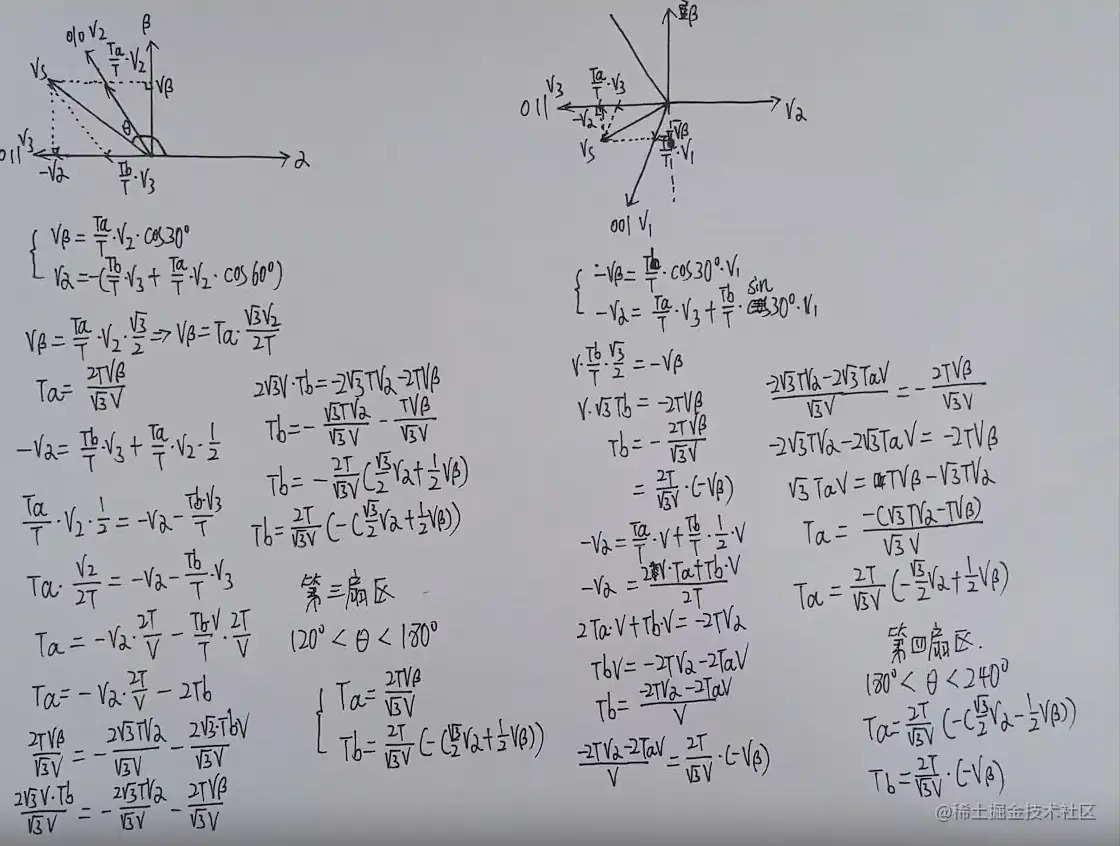 β
010 V2
Ta/T·V2
Vs
Vβ
θ
011 V3
-Vα
Tb/T·V3
α
{ Vβ = Ta/T·V2·cos30°
Vα = -(Tb/T·V3 + Ta/T·V2·cos60°)
Vβ = Ta/T·V2·√3/2 => Vβ = Ta·√3V2/2T
Ta = 2TVβ/√3V
-Vα = Tb/T·V3 + Ta/T·V2·1/2
Ta/T·V2·1/2 = -Vα - Tb·V3/T
Ta·V2/2T = -Vα - Tb/T·V3
Ta = -Vα·2T/V - Tb·V/T·2T/V
Ta = -Vα·2T/V - 2Tb
2TVβ/√3V = -2√3TVα/√3V - 2√3·TbV/√3V
2√3V·Tb/√3V = -2√3TVα/√3V - 2TVβ/√3V
2√3V·Tb = -2√3TVα - 2TVβ
Tb = -√3TVα/√3V - TVβ/√3V
Tb = -2T/√3V(√3/2Vα + 1/2Vβ)
Tb = 2T/√3V(-(√3/2Vα + 1/2Vβ))
第三扇区
120° < θ < 180°
{ Ta = 2TVβ/√3V
Tb = 2T/√3V(-(√3/2Vα + 1/2Vβ))
β
V3
011
Ta/T·V3
-Vα
Vα
Vs
-Vβ
Tb/T·V1
001 V1
{ -Vβ = Tb/T·cos30°·V1
-Vα = Ta/T·V3 + Tb/T·sin30°·V1
V·Tb/T·√3/2 = -Vβ
V·√3Tb = -2TVβ
Tb = -2TVβ/√3V
= 2T/√3V·(-Vβ)
-Vα = Ta/T·V + Tb/T·1/2·V
-Vα = 2V·Ta+Tb·V/2T
2Ta·V + Tb·V = -2TVα
TbV = -2TVα - 2TaV
Tb = -2TVα-2TaV/V
-2TVα-2TaV/V = 2T/√3V·(-Vβ)
-2√3TVα-2√3TaV/√3V = -2TVβ/√3V
-2√3TVα - 2√3TaV = -2TVβ
√3TaV = TVβ - √3TVα
Ta = -(√3TVα-TVβ)/√3V
Ta = 2T/√3V(-√3/2Vα + 1/2Vβ)
第四扇区.
180° < θ < 240°
Ta = 2T/√3V(-(√3/2Vα - 1/2Vβ))
Tb = 2T/√3V·(-Vβ)
@稀土掘金技术社区